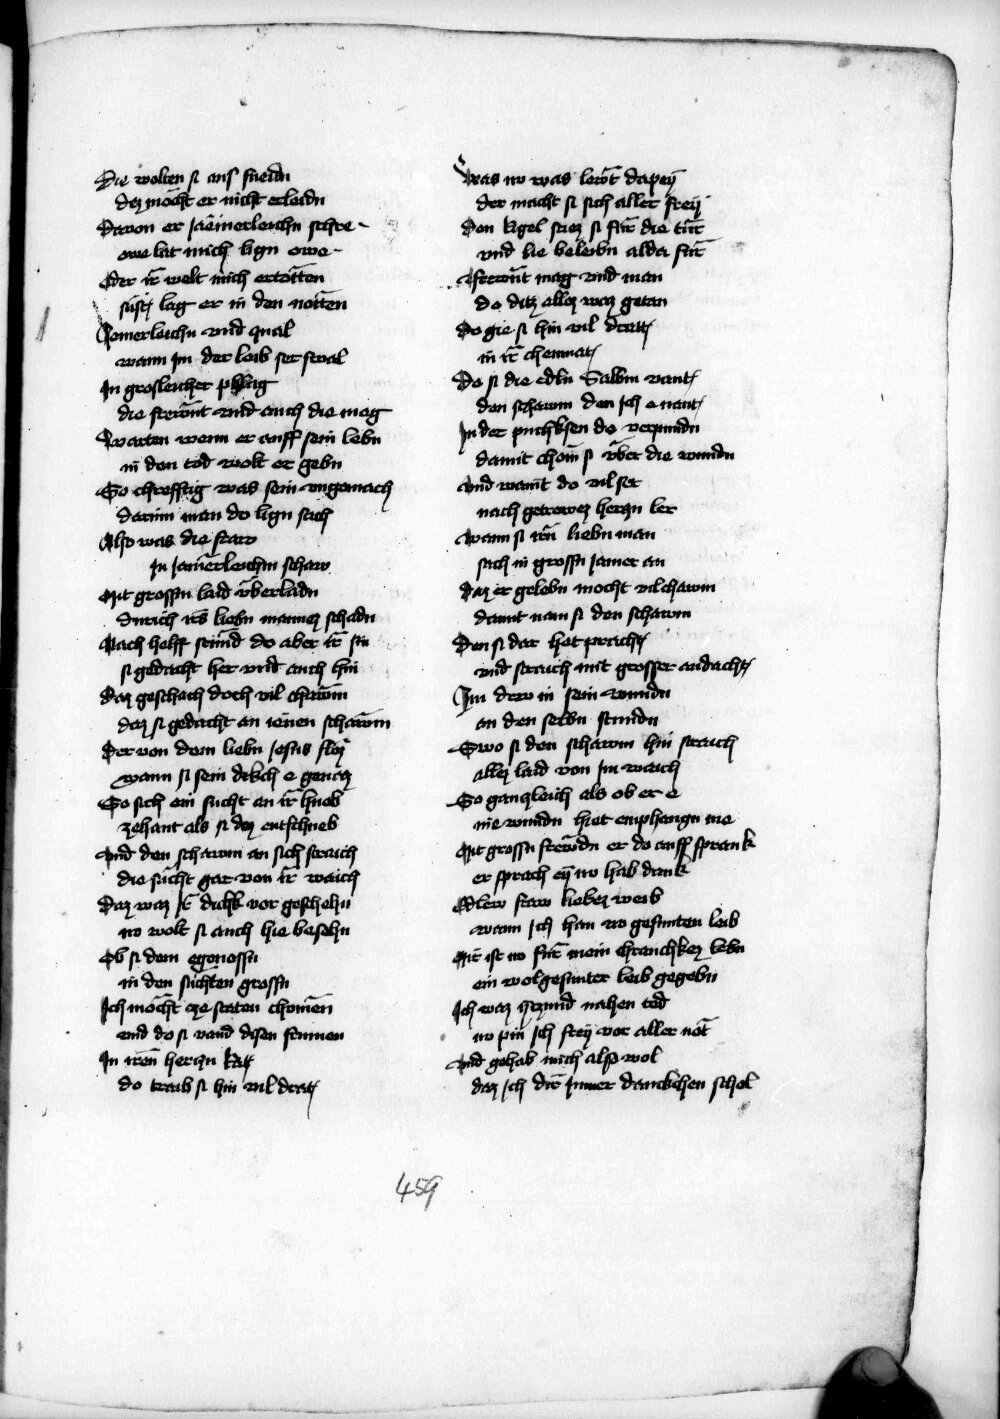 Die wolten si ans sneidn
dez möcht er nicht erleidn
Davon er jämerleichn schre
owe lat mich lign owe
Oder ir welt mich ertötten
sust lag er in den nötten
Jemerleichn vnd qual
wann im der leib ser swal
In grosleicher phlag
die frewnt vnd auch die mag
Warten wenn er auff sein lebn
in den tod wolt er gebn
So chrefftig was sein vngemach
darinn man do lign sach
Also was die fraw
In jamerleichm schaw
Mit grossm laid vberladn
durich irs liebn mannez schadn
Nach helff stund do aber ir sin
si gedacht her vnd auch hin
Daz geschach doch vil chawm
daz si gedacht an ienen schawm
Der von dem liebn jesus floz
wann si sein dikch e genoz
So sich ein sucht an ir hueb
zehant als si daz entschueb
Vnd den schawm an sich straich
die sucht gar von ir waich
Daz waz ir dichk vor geschehn
no wolt si auch hie besehn
Ob si dem egenossn
in den suchten grossn
Ich möcht cze staten chomen
vnd do si vand disen frumen
In iren herczn rat
do traib si hin vil drat
Was no was lewt dapey
der macht si sich aller frey
Den rigel stiez si für die tür
vnd lie beleibn alda für
Frewnt mag vnd man
do ditz allez waz getan
Do gie si hin vil drat
in ir chemnat
Do si die edln salbm vant
den schawm den ich e nant
In der puchksen do verpundn
damit chom si vber die wundn
Vnd waint do vil ser
nach getrewez herczn ler
Wann si irn liebn man
sach in grossn jamer an
Daz er gelebn mocht vilchawm
damit nam si den schawm
Den si dar het pracht
vnd straich mit grosser andacht
Im dew in sein wundn
an den selbn stundn
Swo si den schawm hin straich
allez laid von im waich
So ganczleich als ob er e
nie wundn hiet emphangn me
Mit grossn frewdn er do auff sprank
er sprach ey no hab dank
Edlew fraw liebez weib
wann ich han no gesunten leib
Mir ist no für mein chranchkez lebn
ein wolgesunter leib gegebn
Ich waz yczund nahen tod
no pin ich frey vor aller not
Vnd gehab mich also wol
daz ich dir immer dankchen schol
459